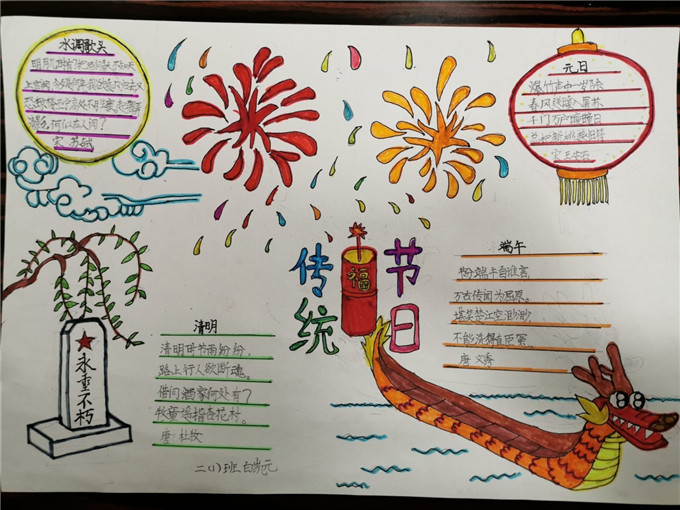 水调歌头
明月几时有?把酒问青天
上宫阙 今夕是何年 我欲乘风归去又
恐琼楼玉宇高处不胜寒,起舞弄
清影,何似在人间?
宋 苏轼
元日
爆竹声中一岁除
春风送暖入屠苏
千门万户曈曈日
总把新桃换旧符
宋 王安石
传统
福
节日
端午
分端午自谁言,
万古传闻为屈原。
堪笑楚江空渺渺
不能洗得直臣冤。
唐 文秀
永垂不朽
清明
清明时节雨纷纷,
路上行人欲断魂。
借问酒家何处有?
牧童遥指杏花村。
唐·杜牧
二(1)班